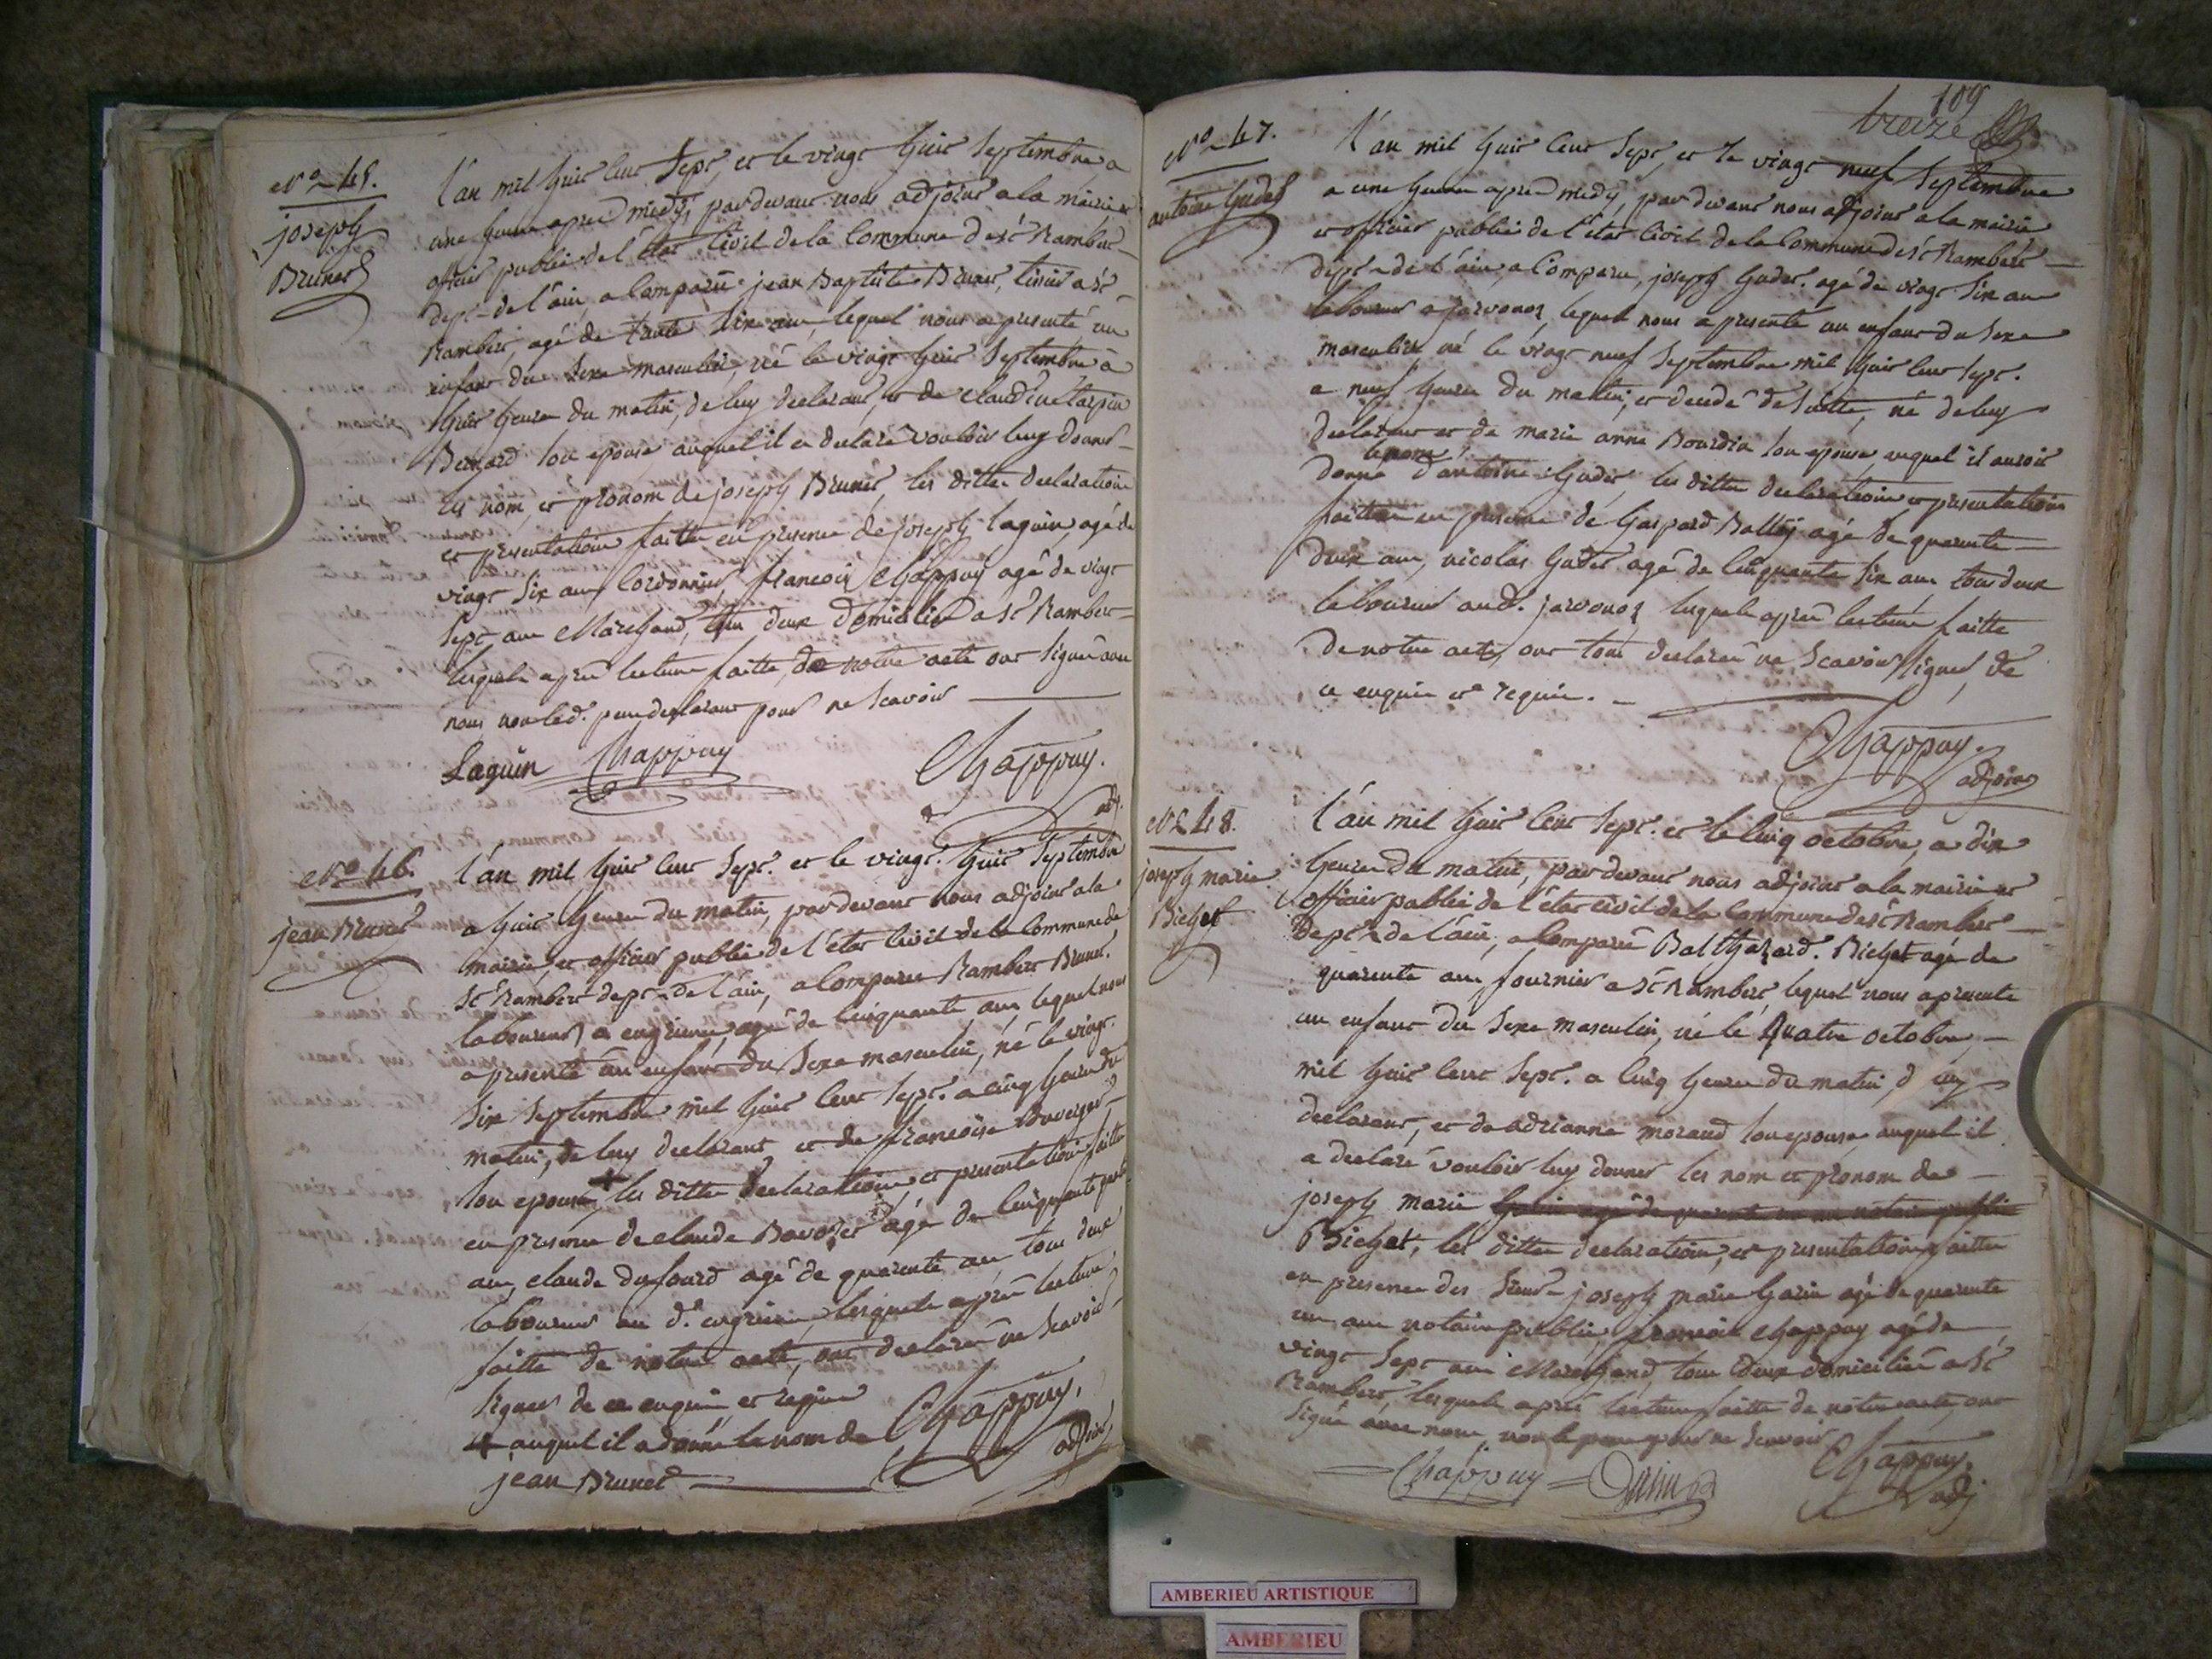 N° 45.
joseph
Brunet
l'an mil huit cent sept, et le vingt huit septembre, a
une heure apres midy, pardevant nous adjoint a la mairie et
officier public de l'état civil de la commune de st Rambert
dept de l'ain, a comparu jean Baptiste Brunet, a st
Rambert, agé de trente six ans, lequel nous a presenté un
enfant du sexe masculin, né le vingt huit septembre a
huit heures du matin, de luy declarant, et de claudine
son epouse auquel il a declaré vouloir luy donner
les nom, et pronom de joseph Brunet, les dittes declaration
et presentation faitte en presence de joseph Laguin, agé de
vingt six ans cordonnier, francois Chappuy agé de vingt
sept ans Marchand, tous deux domiciliés a st Rambert
lesquels apres lecture faitte, de notre acte ont signé avec
nous non led. pere declarant pour ne scavoir
Laguin Chappuy Chappuy.
adj.
N° 46.
jean Brunet
l'an mil huit cent sept. et le vingt. huit septembre
a huit heures du matin, pardevant nous adjoint a la
mairie, et officier public de l'état civil de la commune de
St Rambert dept de l'ain, a comparu Rambert Brunet.
laboureur a agé de cinquante ans lequel nous
a presenté un enfant du sexe masculin, né le vingt.
six septembre mil huit cent sept. a cinq heures du
matin, de luy declarant et de francoise
son epouse, les dittes declaration, et presentation faitte
en presence de claude agé de cinquante
ans, claude dufourd agé de quarente ans tous deux
laboureur au d. lesquels apres lecture
faitte de notre acte, ont declaré ne scavoir
signer de ce enquis et requis
auquel il a donné le nom de
jean Brunet
Chappuy,
adjoint
109
treize
N° 47.
antoine Gudet
l'an mil huit cent sept, et le vingt neuf septembre
a une heure apres midy, pardevant nous adjoint a la mairie
et officier public de l'état civil de la commune de st Rambert
dept de l'ain, a comparu, joseph Gudet. agé de vingt six ans
laboureur a lequel nous a presenté un enfant du sexe
masculin né le vingt neuf septembre mil huit cent sept.
a neuf heures du matin, et decedé de suitte, né de luy
declarant et de marie anne Bourdin son epouse, auquel il auroit
le nom
donné d'antoine Gudet, les dittes declaration et presentation
faittes en presence de Gaspard agé de quarente
deux ans, nicolas Gudet agé de cinquante six ans tous deux
laboureur aud. lesquels apres lecture faitte
de notre acte, ont tous declaré ne scavoir signer de
ce enquis et requis.
Chappuy.
adjoint
N° 48.
joseph marie
Bichet
l'an mil huit cent sept. et le cinq octobre, a dix
heures du matin, pardevant nous adjoint a la mairie et
officier public de l'état civil de la commune de st Rambert
dept de l'ain, a comparu Balthazard. Bichet agé de
quarente ans fournier a st Rambert lequel nous a presenté
un enfant du sexe masculin, né le quatre octobre,
mil huit cent sept. a cinq heures du matin, d luy
declarant, et de adrianne morand son epouse, auquel il
a declaré vouloir luy donner les nom et pronom de
joseph marie
Bichet, les dittes declaration, et presentation faittes
en presence des sieurs joseph marie Garin agé de quarente
un ans notaire public, francois Chappuy agé de
vingt sept ans Marchand, tous deux domiciliés a st
Rambert, lesquels après lecture faitte de notre acte, ont
signé avec nous, non le pere pour ne scavoir
Chappuy Garin Chappuy
adj
AMBERIEU ARTISTIQUE
AMBERIEU